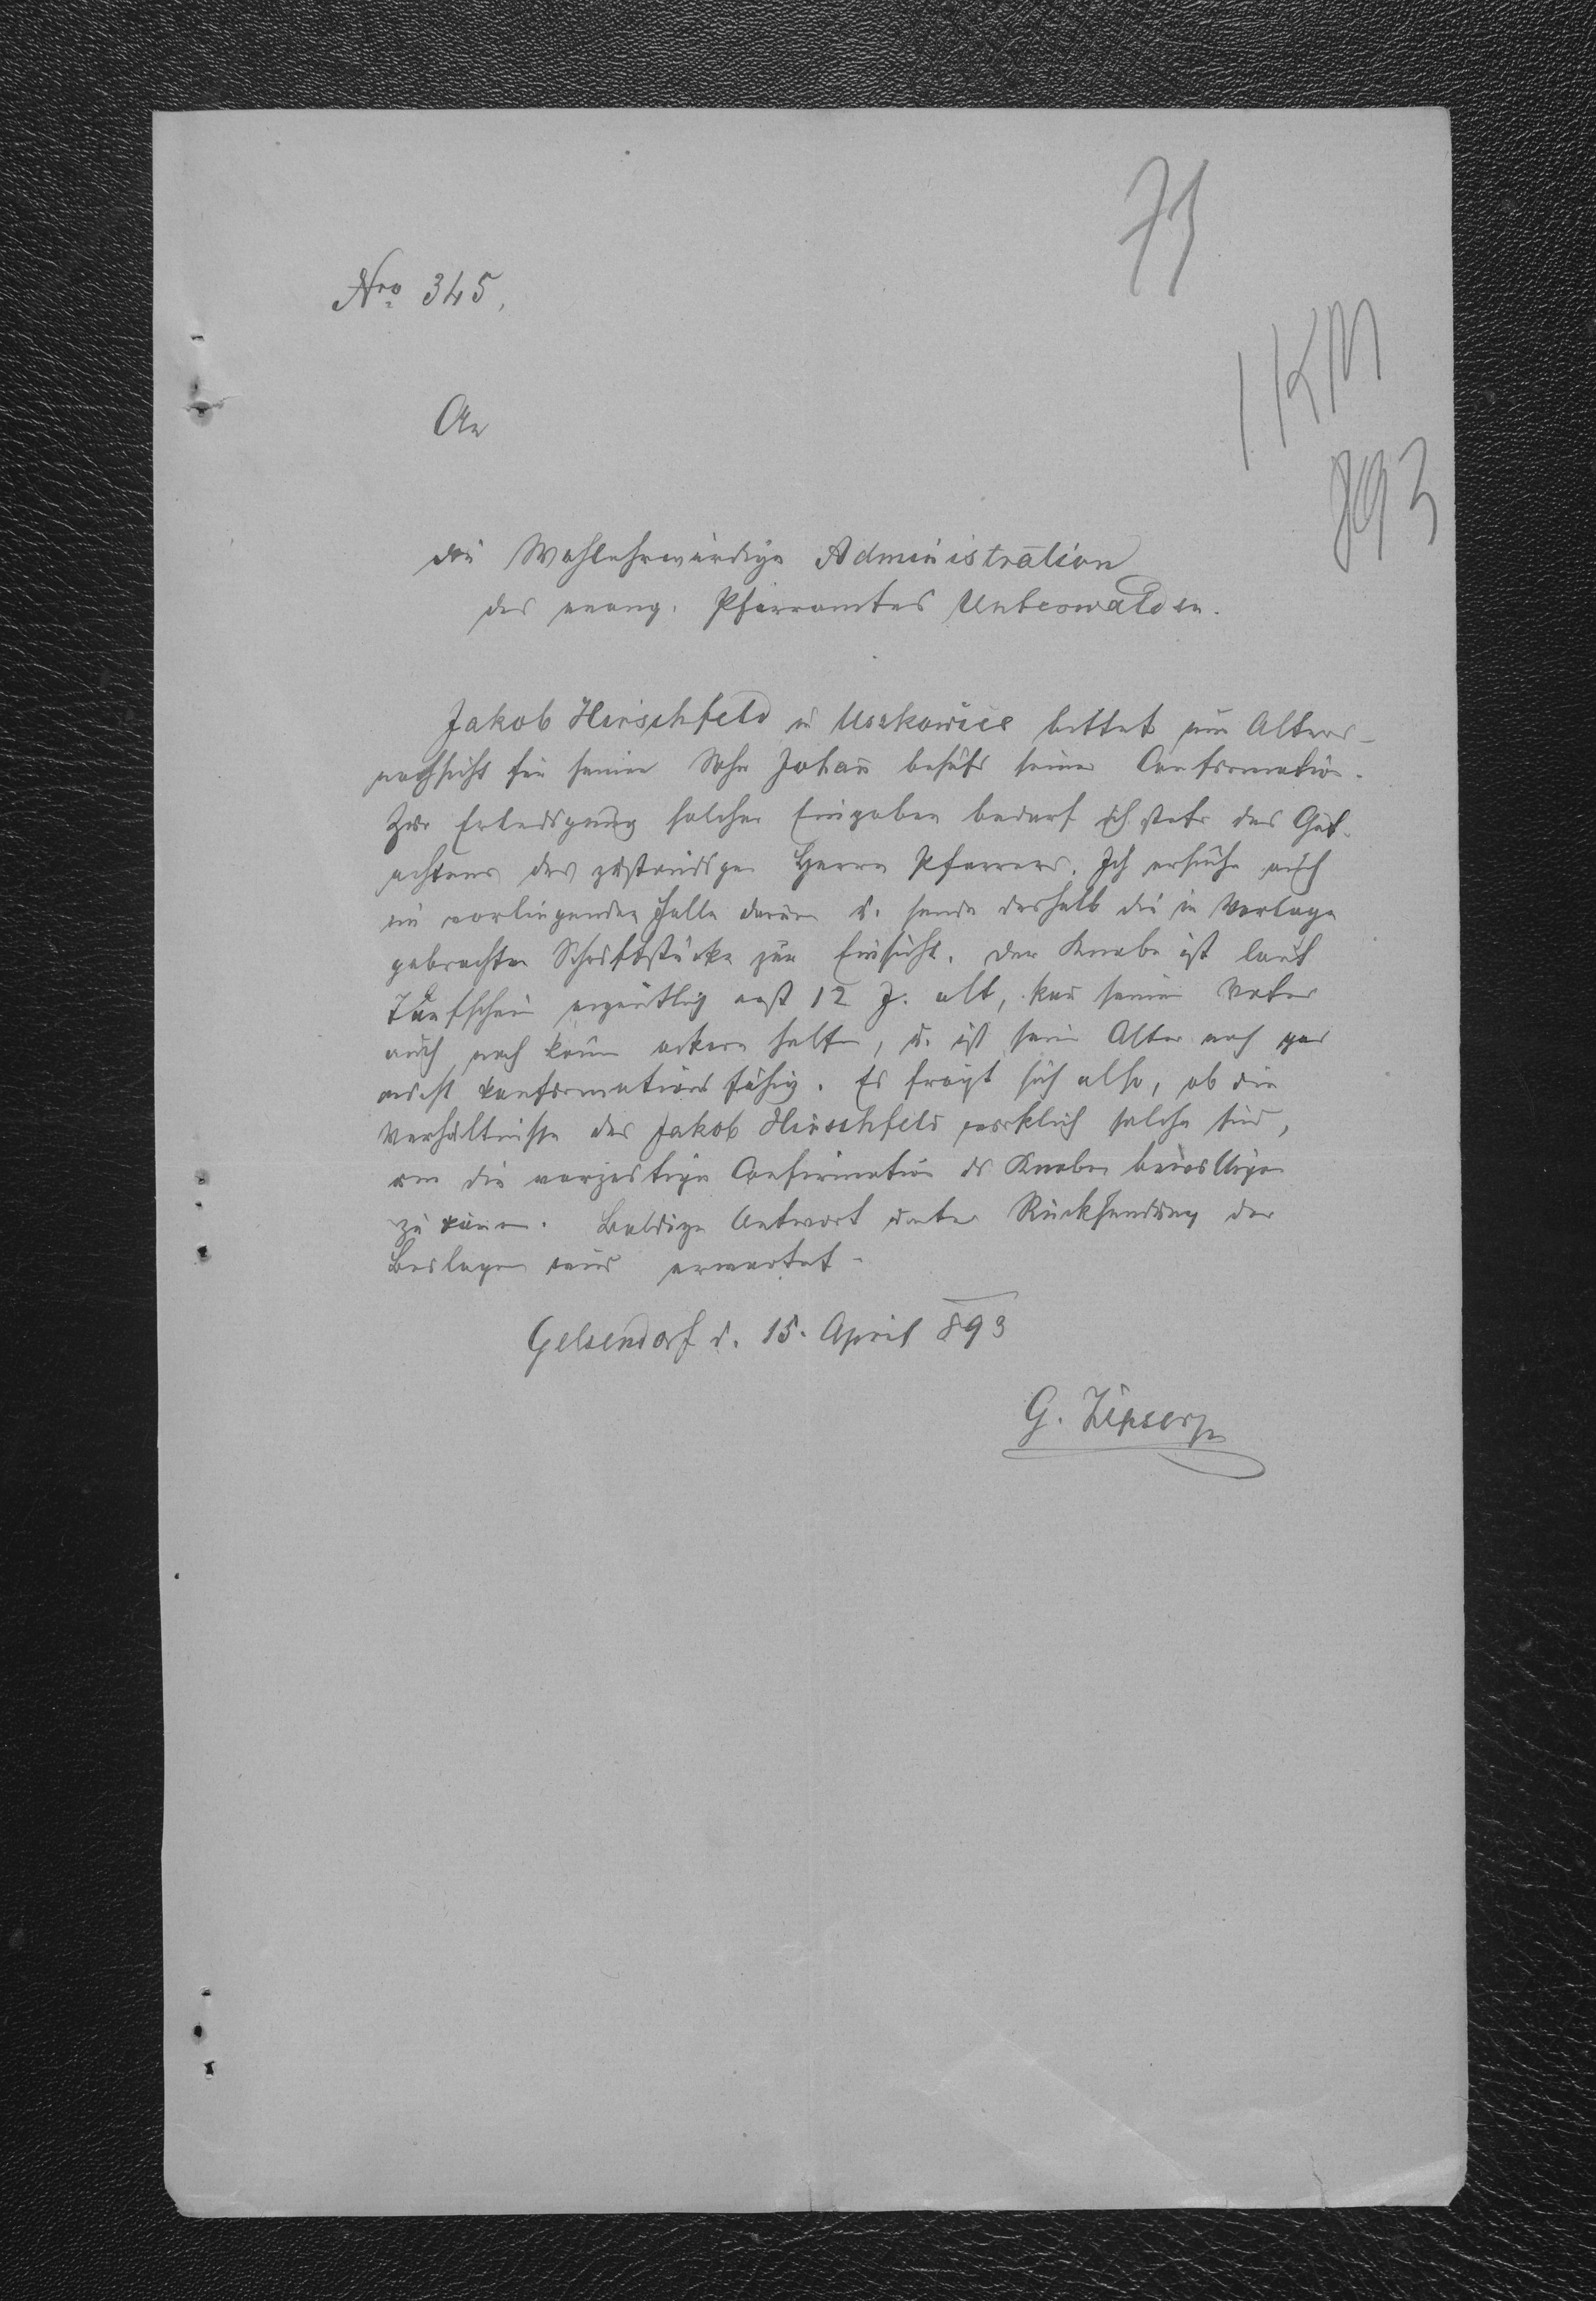 71
Nro 345.
1 KM
893
An
die Wohlehrwürdige Administration
des evang. Pfarramtes Unterwalden.
Jakob Hirschfeld in Uszkowice bittet um Alters-
nachsicht für seinen Sohn Johann behufs seiner Confirmation.
Zur Erledigung solcher Eingaben bedarf ich stets des Gut-
achtens des zuständigen Herrn Pfarrers. Ich ersuche auch
im vorliegenden Falle darum u. sende deshalb die in Vorlage
gebrachten Schriftstücke zur Einsicht. Der Knabe ist laut
Taufschein eigentlich erst 12 J. alt, kan seinem Vater
auch noch kaum ackern helfen, u. ist sein Alter noch gar
nicht konfirmationsfähig. Es fragt sich also, ob die
Verhältnisse des Jakob Hirschfeld wirklich solche sind,
um die vorzeitige Confirmation ds Knaben bewilligen
zu könen. Baldige Antwort unter Rücksendung der
Beilagen wird erwartet -
Gelsendorf d. 15. April 893
G. Zipser